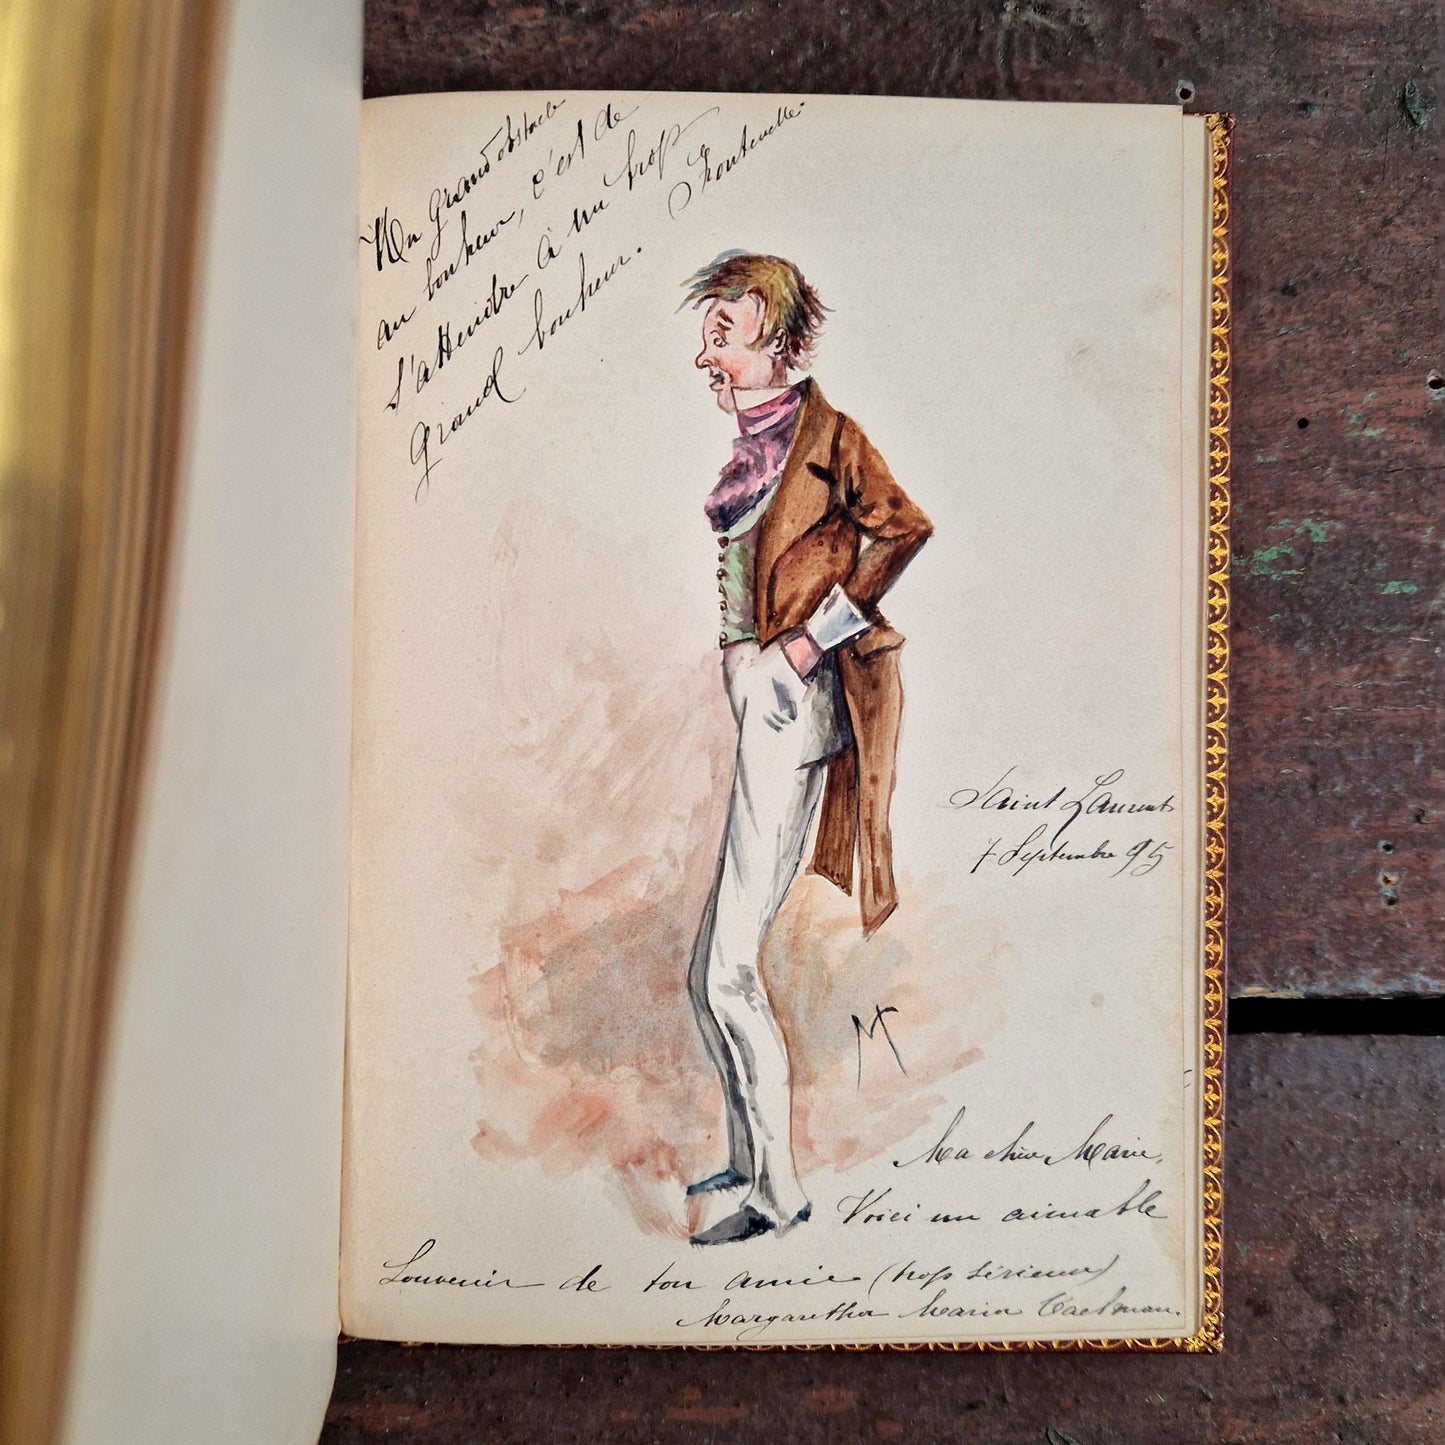 Un grand obstacle
au bonheur, c'est de
s'attendre à un trop
grand bonheur.
Fontenelle.
Saint Laurent
7 Septembre 95
M
Ma chère Marie,
Voici un aimable
Souvenir de ton amie (trop sérieuse)
Margaretha Maria